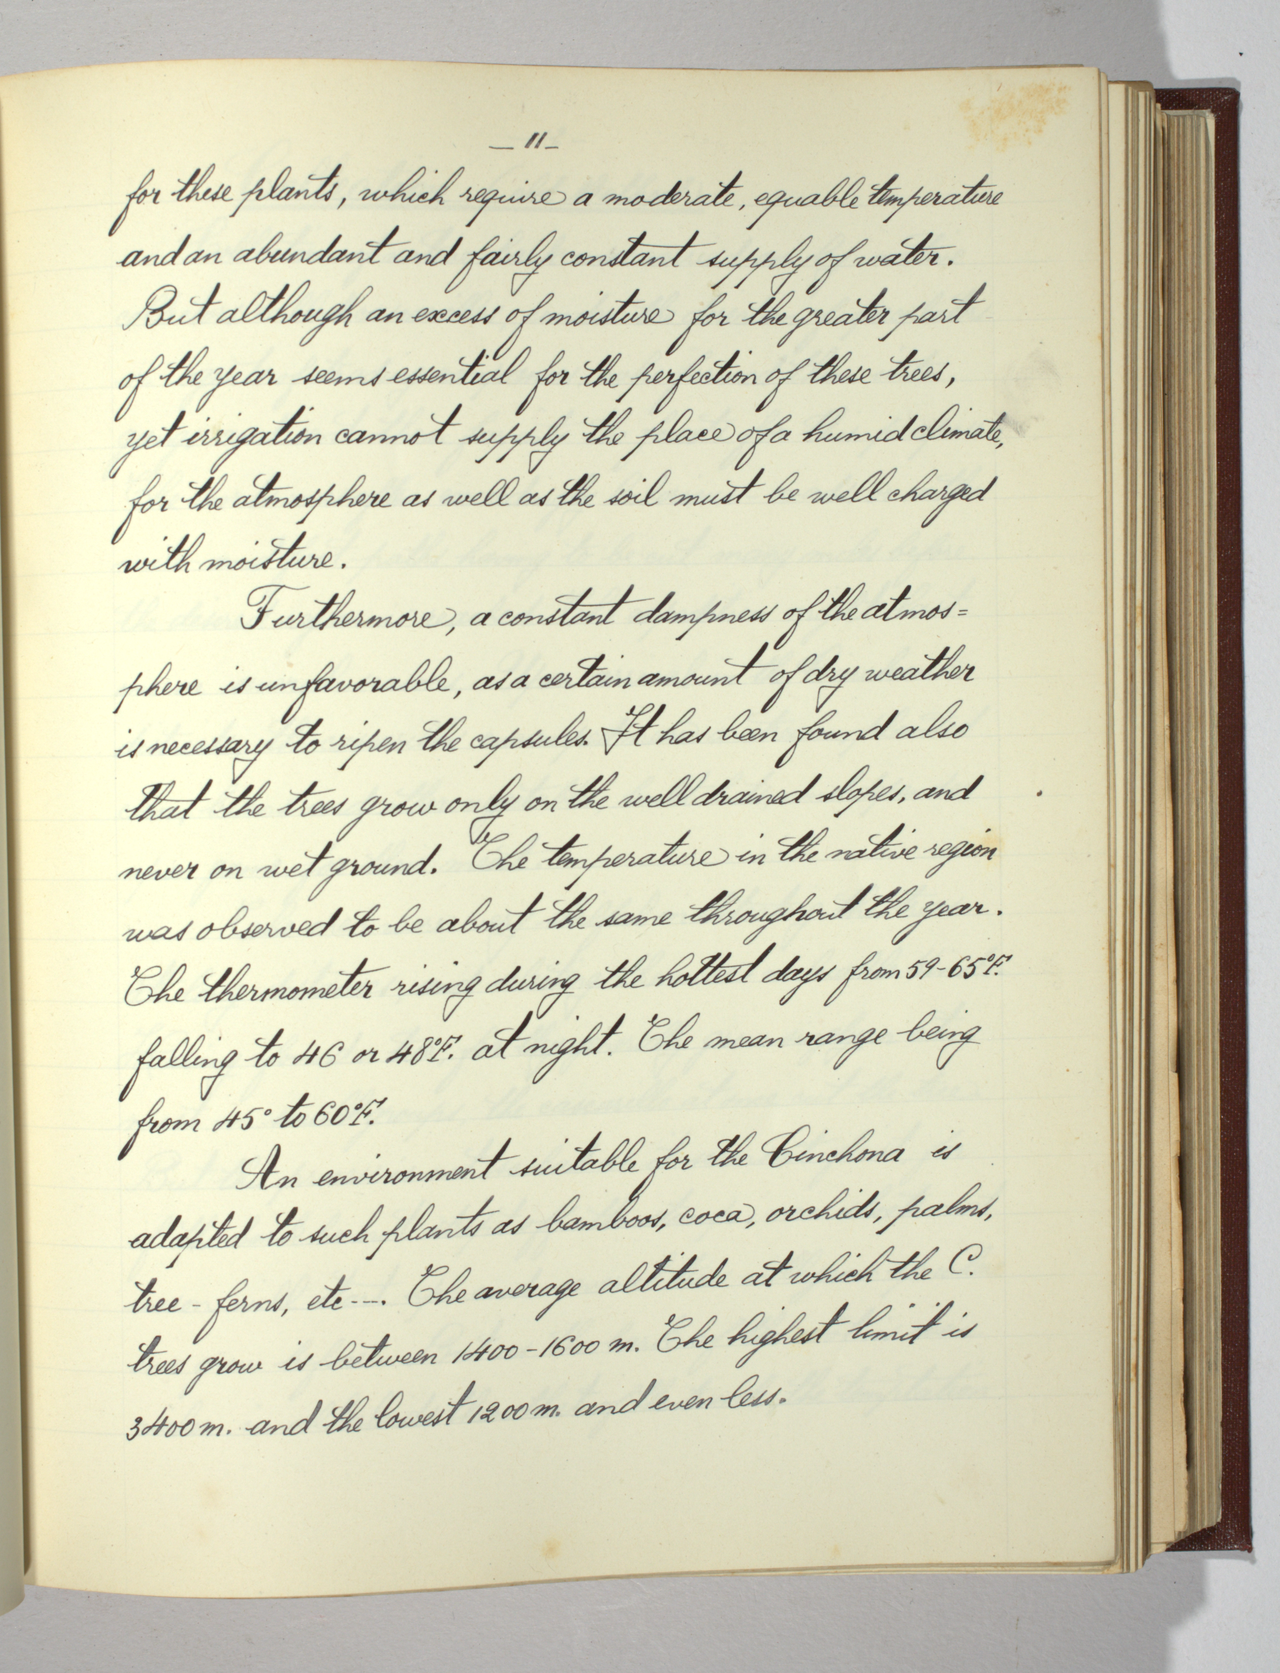 — 11 —
for these plants, which require a moderate, equable temperature
and an abundant and fairly constant supply of water.
But although an excess of moisture for the greater part
of the year seems essential for the perfection of these trees,
yet irrigation cannot supply the place of a humid climate,
for the atmosphere as well as the soil must be well charged
with moisture.
Furthermore, a constant dampness of the atmos=
phere is unfavorable, as a certain amount of dry weather
is necessary to ripen the capsules. It has been found also
that the trees grow only on the well drained slopes, and
never on wet ground. The temperature in the native region
was observed to be about the same throughout the year.
The thermometer rising during the hottest days from 59-65°F.
falling to 46 or 48°F. at night. The mean range being
from 45° to 60°F.
An environment suitable for the Cinchona is
adapted to such plants as bamboos, coca, orchids, palms,
tree - ferns, etc ---. The average altitude at which the C.
trees grow is between 1400-1600 m. The highest limit is
3400 m. and the lowest 1200 m. and even less.